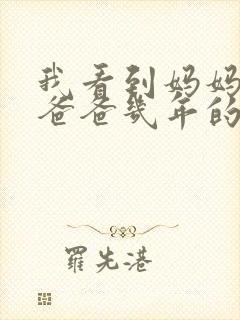 我看到妈妈
爸爸几年的
羅先港